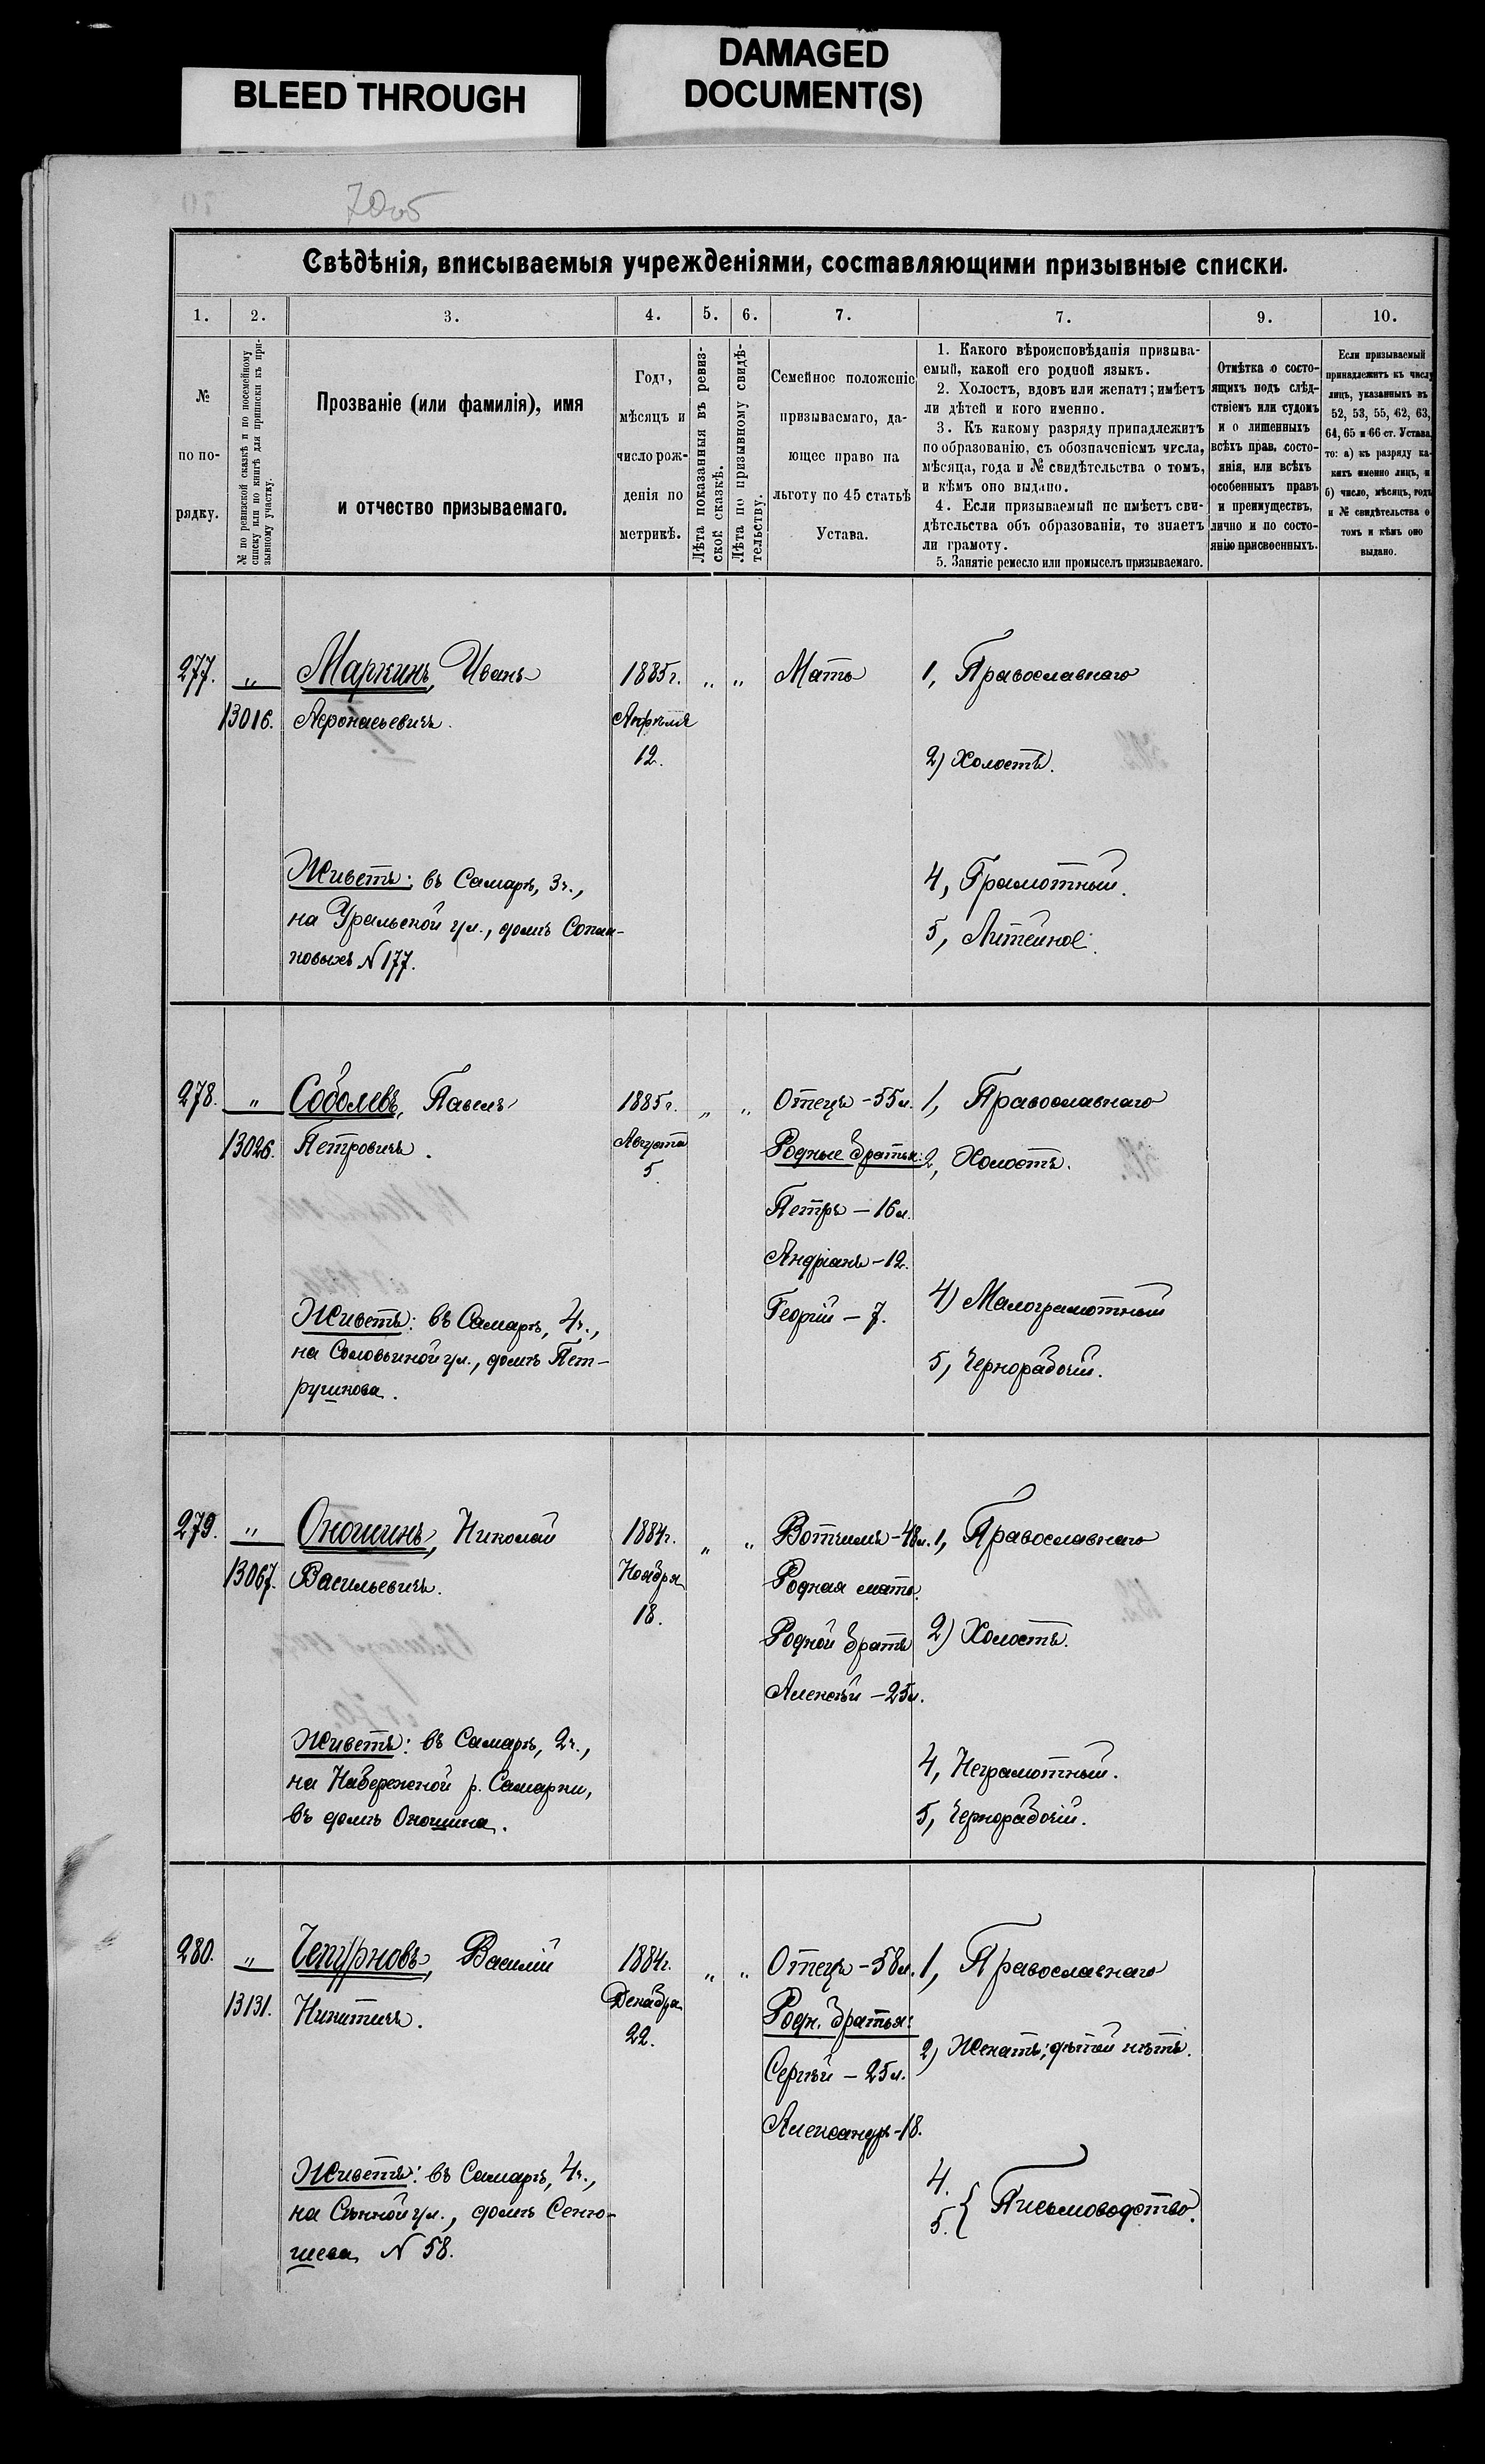 DAMAGED
DOCUMENT(S)
BLEED THROUGH
Свѣдѣнія, вписываемыя учрежденіями, составляющими призывные списки.
1. 2. 3. 4. 5. 6. 7. 7. 9. 10.
№
по по-
рядку.
№ по ревизской сказкѣ и по посемейному
списку или по книгѣ для приписки къ при-
зывному участку.
Прозваніе (или фамилія), имя
и отчество призываемаго.
Годъ,
мѣсяцъ и
число рож-
денія по
метрикѣ.
Лѣта показанныя въ ревиз-
ской сказкѣ.
Лѣта по призывному свидѣ-
тельству.
Семейное положеніе
призываемаго, да-
ющее право на
льготу по 45 статьѣ
Устава.
1. Какого вѣроисповѣданія призыва-
емый, какой его родной языкъ.
2. Холостъ, вдовъ или женатъ; имѣетъ
ли дѣтей и кого именно.
3. Къ какому разряду принадлежитъ
по образованію, съ обозначеніемъ числа,
мѣсяца, года и № свидѣтельства о томъ,
и кѣмъ оно выдано.
4. Если призываемый не имѣетъ сви-
дѣтельства объ образованіи, то знаетъ
ли грамоту.
5. Занятіе ремесло или промыселъ призываемаго.
Отмѣтка о состо-
ящихъ подъ слѣд-
ствіемъ или судомъ
и о лишенныхъ
всѣхъ прав, состо-
янія, или всѣхъ
особенныхъ правъ
и преимуществъ,
лично и по состо-
янію присвоенныхъ.
Если призываемый
принадлежитъ къ числу
лицъ, указанныхъ въ
52, 53, 55, 62, 63,
64, 65 и 66 ст. Устава,
то: а) къ разряду ка-
кихъ именно лицъ, и
б) число, мѣсяцъ, годъ
и № свидѣтельства о
томъ и кѣмъ оно
выдано.
277. „ Маркинъ, Иванъ 1885г. „ „ Мать 1, Православнаго
13016. Афонасьевичъ. Апрѣля
12. 2) Холостъ.
Живетъ: въ Самарѣ, 3ч., 4, Грамотный.
на Уральской ул., домъ 5, Литейное.
новыхъ N 177.
278. „ Соболевъ, Павелъ 1885г. „ „ Отецъ - 55л. 1, Православнаго
13026. Петровичъ. Августа Родные братья: 2, Холостъ.
5.
Петръ - 16л.
Андріанъ - 12.
Георгій - 7. 4) Малограмотный
Живетъ: въ Самарѣ, 4ч.,
на Соловьиной ул., домъ Пет- 5, Чернорабочій.
ручинова.
279. „ Оношинъ, Николай 1884г. „ „ Вотчимъ - 48л. 1, Православнаго
13067. Васильевичъ. Ноября Родная мать.
18. Родной братъ 2) Холостъ.
Алексѣй - 25л.
Живетъ: въ Самарѣ, 2ч.,
на Набережной р. Самарки, 4, Неграмотный.
въ домѣ Оношина. 5, Чернорабочій.
280. „ Чепурновъ, Василій 1884г. „ „ Отецъ - 58л. 1, Православнаго
13131. Никитичъ. Декабря Родн. братья:
22. 2) Женатъ; дѣтей нѣтъ.
Сергѣй - 25л.
Александръ - 18.
Живетъ: въ Самарѣ, 4ч., 4.
на Сѣнной ул., домъ Сеню- 5. { Письмоводство.
шева, N 58.